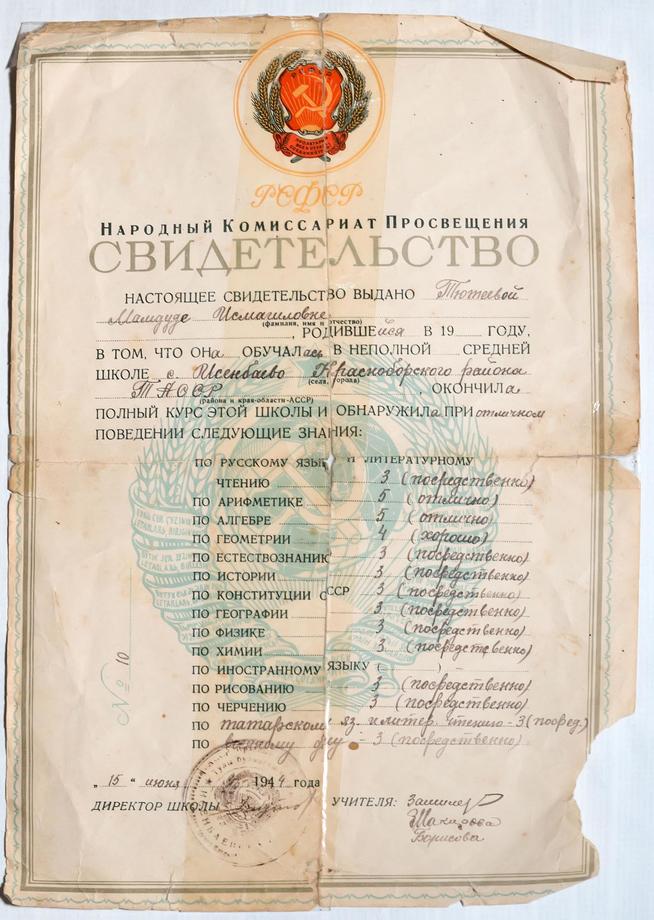 РСФСР
НАРОДНЫЙ КОМИССАРИАТ ПРОСВЕЩЕНИЯ
СВИДЕТЕЛЬСТВО
НАСТОЯЩЕЕ СВИДЕТЕЛЬСТВО ВЫДАНО Тютеевой
Мамдуде Исмагиловне
(фамилия, имя и отчество)
, РОДИВШЕйся В 19 ГОДУ,
В ТОМ, ЧТО ОНа ОБУЧАЛась В НЕПОЛНОЙ СРЕДНЕЙ
ШКОЛЕ с. Исенбаево Красноборского района
(села, города)
ТАССР , ОКОНЧИЛа
(района и края-области-АССР)
ПОЛНЫЙ КУРС ЭТОЙ ШКОЛЫ И ОБНАРУЖИЛа ПРИ отличном
ПОВЕДЕНИИ СЛЕДУЮЩИЕ ЗНАНИЯ:
ПО РУССКОМУ ЯЗЫКУ И ЛИТЕРАТУРНОМУ
ЧТЕНИЮ 3 (посредственно)
ПО АРИФМЕТИКЕ 5 (отлично)
ПО АЛГЕБРЕ 5 (отлично)
ПО ГЕОМЕТРИИ 4 (хорошо)
ПО ЕСТЕСТВОЗНАНИЮ 3 (посредственно)
ПО ИСТОРИИ 3 (посредственно)
ПО КОНСТИТУЦИИ СССР 3 (посредственно)
ПО ГЕОГРАФИИ 3 (посредственно)
ПО ФИЗИКЕ 3 (посредственно)
ПО ХИМИИ 3 (посредственно)
ПО ИНОСТРАННОМУ ЯЗЫКУ ( ) -
ПО РИСОВАНИЮ 3 (посредственно)
ПО ЧЕРЧЕНИЮ 3 (посредственно)
ПО татарскому яз. и литер. чтению - 3 (посред.)
ПО военному делу - 3 (посредственно)
№ 10
„15" июня 1944 года
ДИРЕКТОР ШКОЛЫ УЧИТЕЛЯ:
Шакирова
Борисова